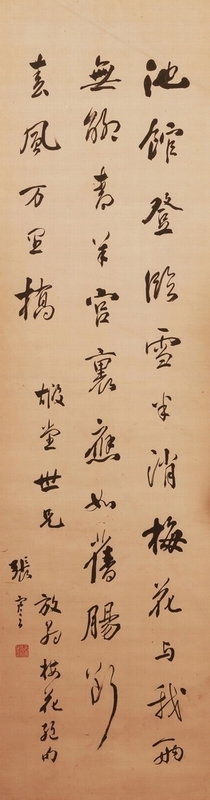 池館登臨雪半消梅花与我兩
無聊青羊宮裏應如舊腸斷
春風万里橋
堂世兄
放翁梅花絕句
張之